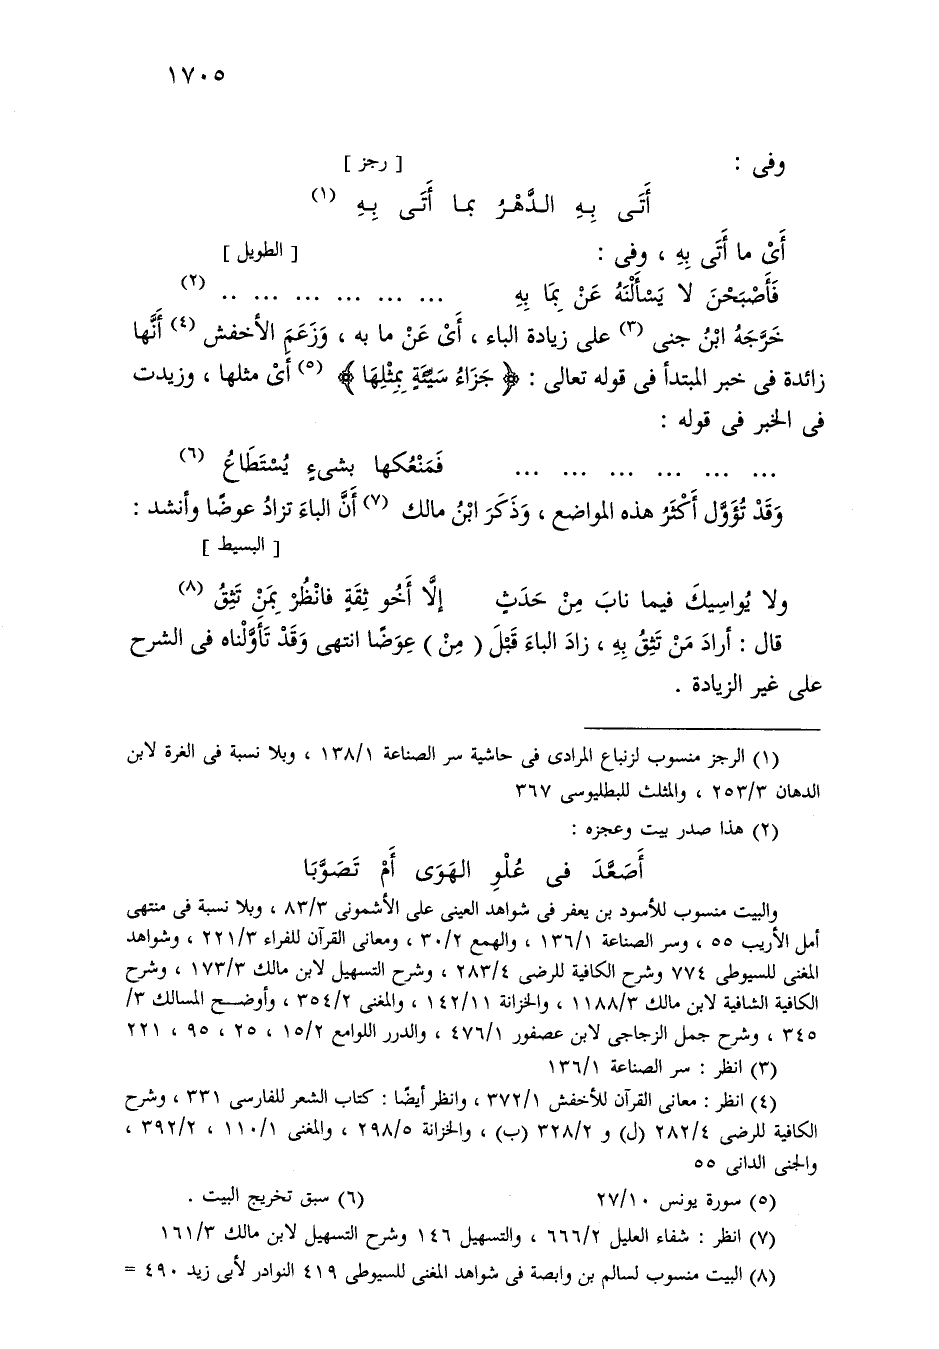 ١٧٠٥
وفى : [ رجز ]
أَتَى بِهِ الدَّهْرُ بما أَتَى بِهِ (١)
أَىْ ما أَتَى بِهِ ، وفى : [ الطويل ]
فَأَصْبَحْنَ لا يَسْأَلْنَهُ عَنْ بِمَا بِهِ ... ... ... ... ... .. (٢)
خَرَّجَهُ ابْنُ جنى (٣) على زيادة الباء ، أَىْ عَنْ ما به ، وَزَعَمَ الأخفش (٤) أَنَّها
زائدة فى خبر المبتدأ فى قوله تعالى : ﴿ جَزَاءُ سَيِّئَةٍ بِمِثْلِهَا ﴾ (٥) أَىْ مثلها ، وزيدت
فى الخبر فى قوله :
... ... ... ... ... ... فَمَنْعُكها بشىءٍ يُسْتَطَاعُ (٦)
وَقَدْ تُؤَوَّل أَكْثَرُ هذه المواضع ، وَذَكَرَ ابْنُ مالك (٧) أَنَّ الباءَ تزادُ عوضًا وأنشد :
[ البسيط ]
ولا يُواسِيكَ فيما نابَ مِنْ حَدَثٍ إلَّا أَخُو ثِقَةٍ فانْظُرْ بِمَنْ تَثِقُ (٨)
قال : أرادَ مَنْ تَثِقُ بِهِ ، زادَ الباءَ قَبْلَ ( مِنْ ) عِوَضًا انتهى وَقَدْ تَأَوَّلْناه فى الشرح
على غير الزيادة .
(١) الرجز منسوب لزنباع المرادى فى حاشية سر الصناعة ١٣٨/١ ، وبلا نسبة فى الغرة لابن
الدهان ٢٥٣/٣ ، والمثلث للبطليوسى ٣٦٧
(٢) هذا صدر بيت وعجزه :
أَصَعَّدَ فى عُلْوِ الهَوَى أَمْ تَصَوَّبَا
والبيت منسوب للأسود بن يعفر فى شواهد العينى على الأشمونى ٨٣/٣ ، وبلا نسبة فى منتهى
أمل الأريب ٥٥ ، وسر الصناعة ١٣٦/١ ، والهمع ٣٠/٢ ، ومعانى القرآن للفراء ٢٢١/٣ ، وشواهد
المغنى للسيوطى ٧٧٤ وشرح الكافية للرضى ٢٨٣/٤ ، وشرح التسهيل لابن مالك ١٧٣/٣ ، وشرح
الكافية الشافية لابن مالك ١١٨٨/٣ ، والخزانة ١٤٢/١١ ، والمغنى ٣٥٤/٢ ، وأوضح المسالك ٣/
٣٤٥ ، وشرح جمل الزجاجى لابن عصفور ٤٧٦/١ ، والدرر اللوامع ١٥/٢ ، ٢٥ ، ٩٥ ، ٢٢١
(٣) انظر : سر الصناعة ١٣٦/١
(٤) انظر : معانى القرآن للأخفش ٣٧٢/١ ، وانظر أيضًا : كتاب الشعر للفارسى ٣٣١ ، وشرح
الكافية للرضى ٢٨٢/٤ (ل) و ٣٢٨/٢ (ب) ، والخزانة ٢٩٨/٥ ، والمغنى ١١٠/١ ، ٣٩٢/٢ ،
والجنى الدانى ٥٥
(٥) سورة يونس ٢٧/١٠ (٦) سبق تخريج البيت .
(٧) انظر : شفاء العليل ٦٦٦/٢ ، والتسهيل ١٤٦ وشرح التسهيل لابن مالك ١٦١/٣
(٨) البيت منسوب لسالم بن وابصة فى شواهد المغنى للسيوطى ٤١٩ النوادر لأبى زيد ٤٩٠ =